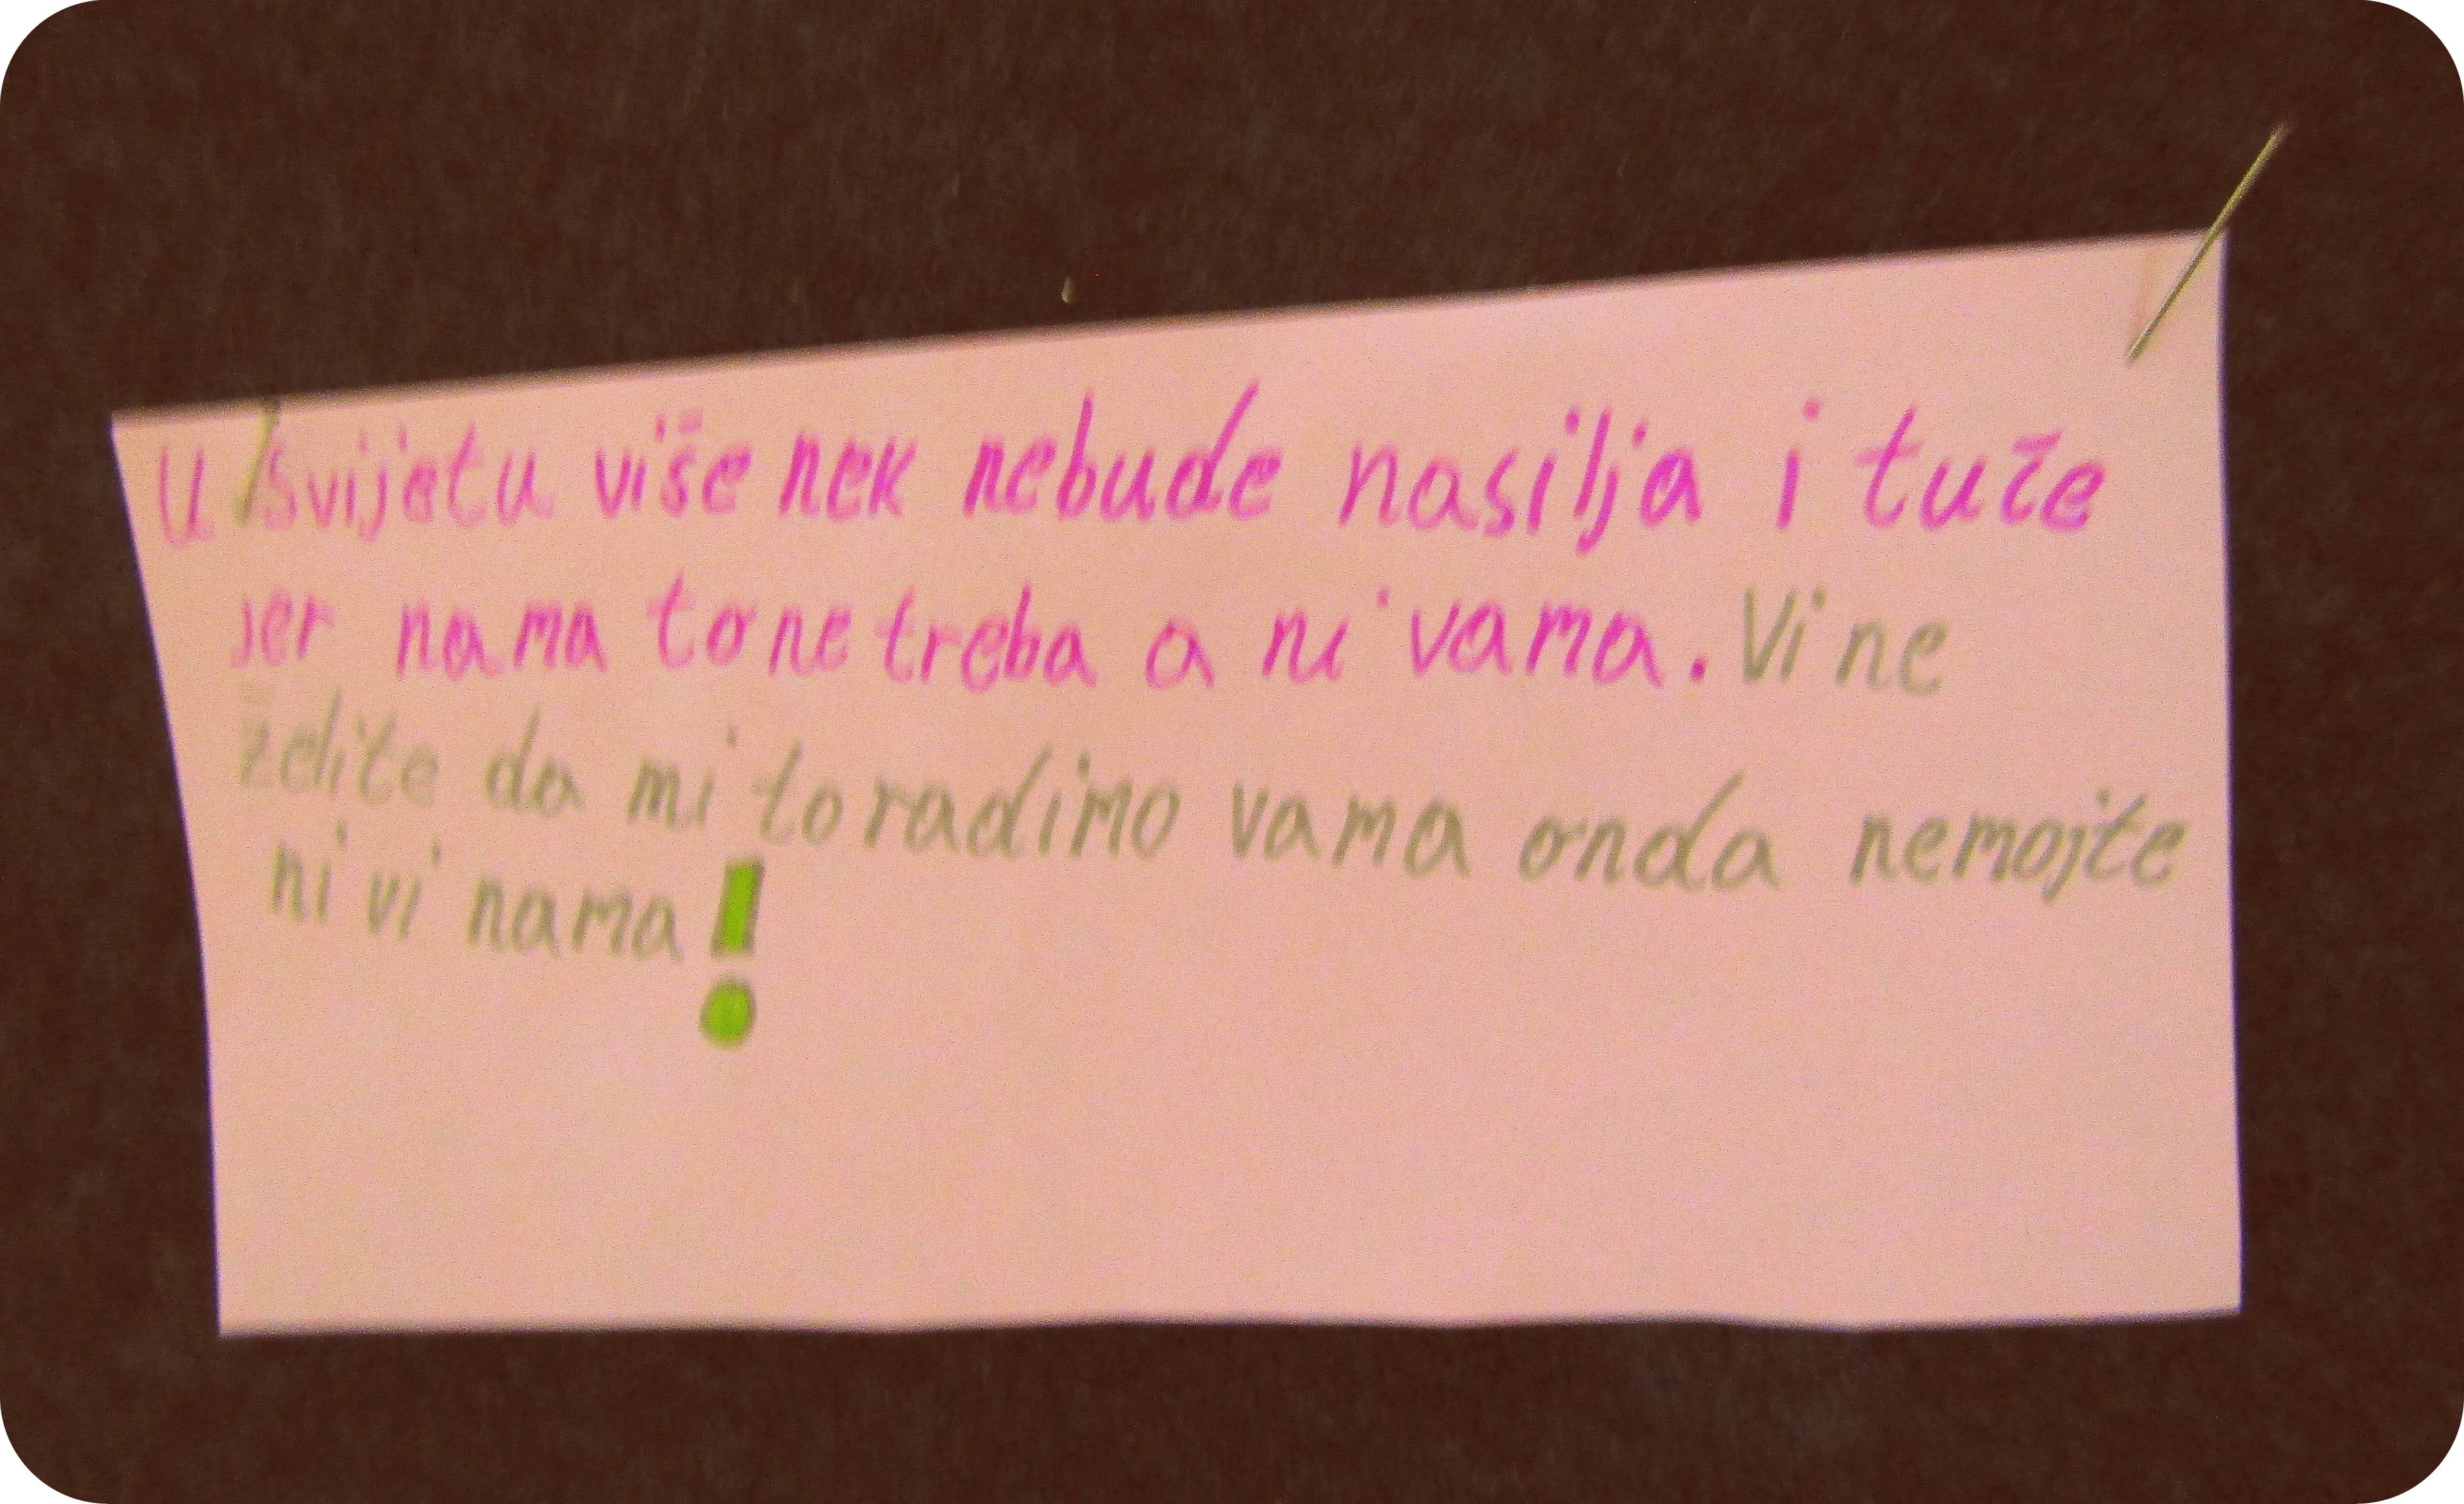 U svijetu više nek nebude nasilja i tuče
jer nama to ne treba a ni vama. Vi ne
želite da mi to radimo vama onda nemojte
ni vi nama!